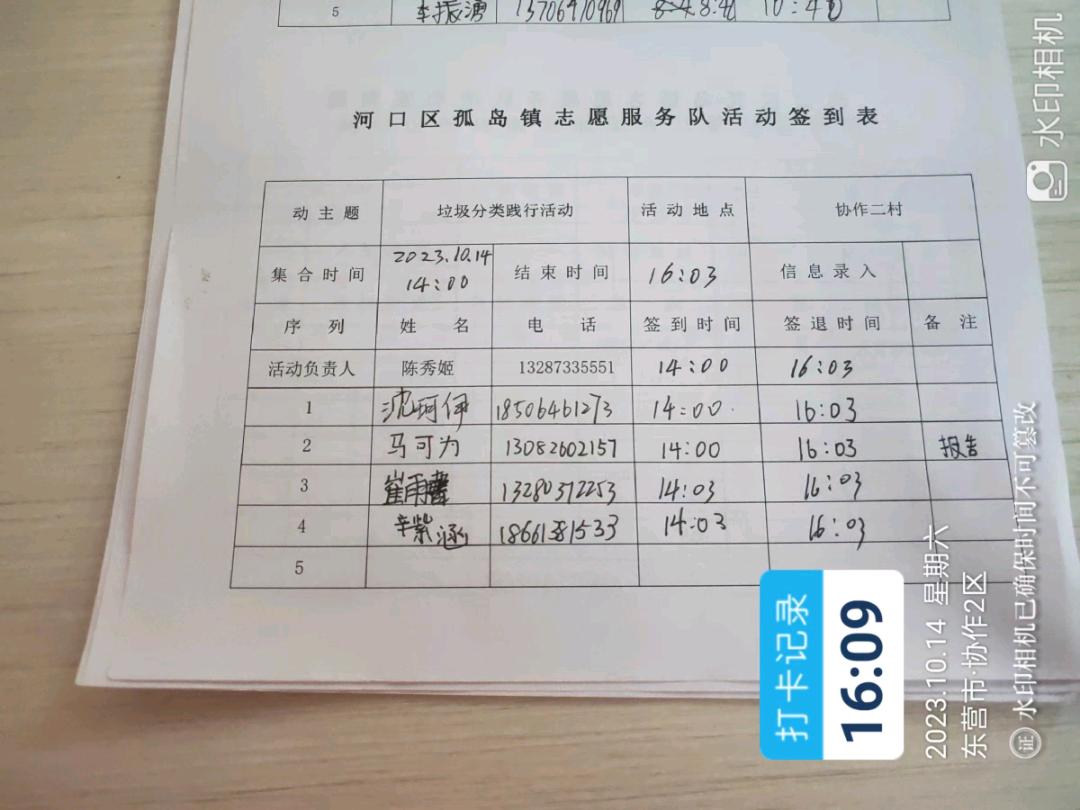 5 李振涌 13706470969 8:48 10:40
河口区孤岛镇志愿服务队活动签到表
动主题 垃圾分类践行活动 活动地点 协作二村
集合时间 2023.10.14 14:00 结束时间 16:03 信息录入
序列 姓名 电话 签到时间 签退时间 备注
活动负责人 陈秀姬 13287335551 14:00 16:03
1 沈珂伊 18506461273 14:00 16:03
2 马可为 13082602157 14:00 16:03 报告
3 崔雨 13280372253 14:03 16:03
4 辛紫涵 18661381533 14:03 16:03
5
打卡记录
16:09
2023.10.14 星期六
东营市·协作2区
证 水印相机已确保时间不可篡改
水印相机